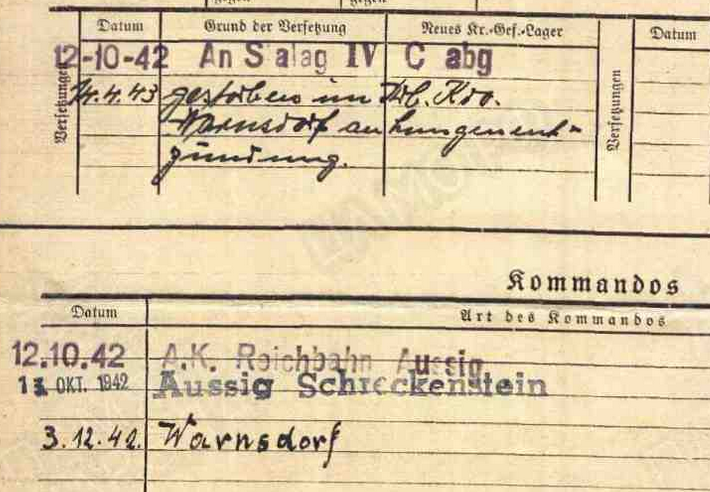 gegen gegen
Datum Grund der Versetzung Neues Kr.-Gef.-Lager Datum
Versetzungen
12-10-42 An Stalag IV C abg
14.4.43 gestorben im Arb. Kdo.
Warnsdorf an Lungenent-
zündung.
Versetzungen
Kommandos
Datum Art des Kommandos
12.10.42 A.K. Reichbahn Aussig
OKT. 1942 Aussig Schreckenstein
3.12.42. Warnsdorf